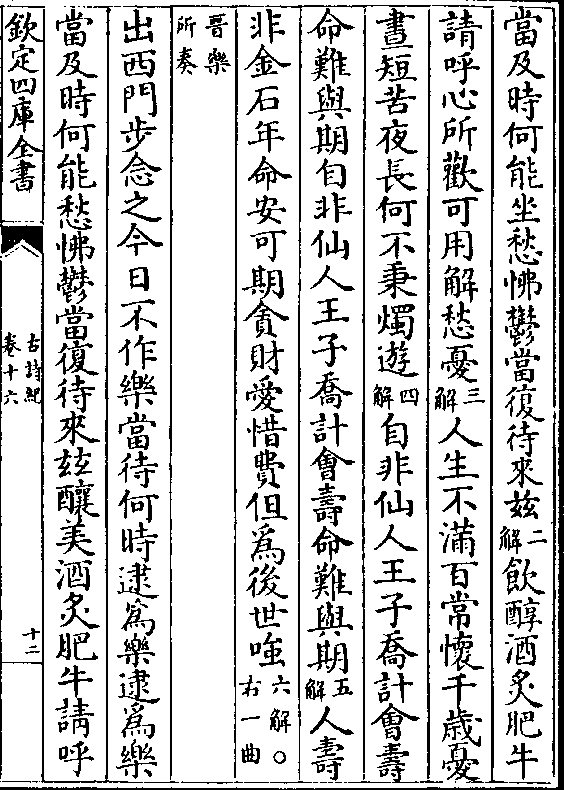 當及時何能坐愁怫鬱當復待來兹二解飲醇酒炙肥牛
請呼心所歡可用解愁憂三解人生不滿百常懷千歲憂
晝短苦夜長何不秉燭遊四解自非仙人王子喬計會壽
命難與期自非仙人王子喬計會壽命難與期五解人壽
非金石年命安可期貪財愛惜費但爲後世嗤六解〇右一曲
晋樂所奏
出西門步念之今日不作樂當待何時逮爲樂逮爲樂
當及時何能愁怫鬱當復待來兹釀美酒炙肥牛請呼
欽定四庫全書
古詩紀
卷十六
十二